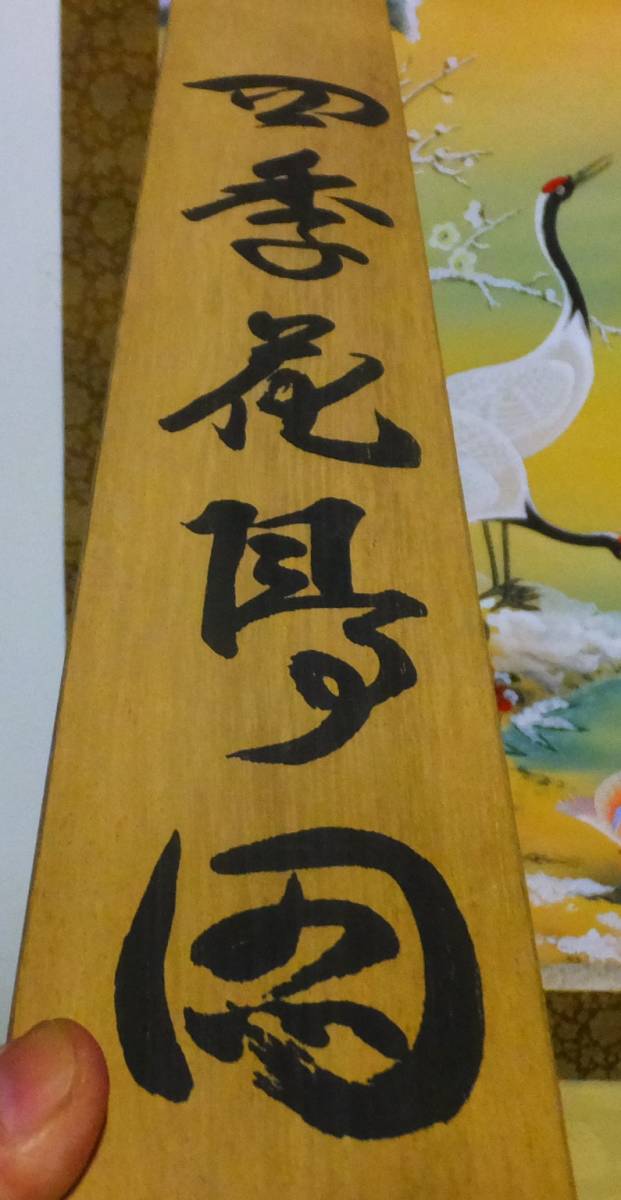 四季花鳥図